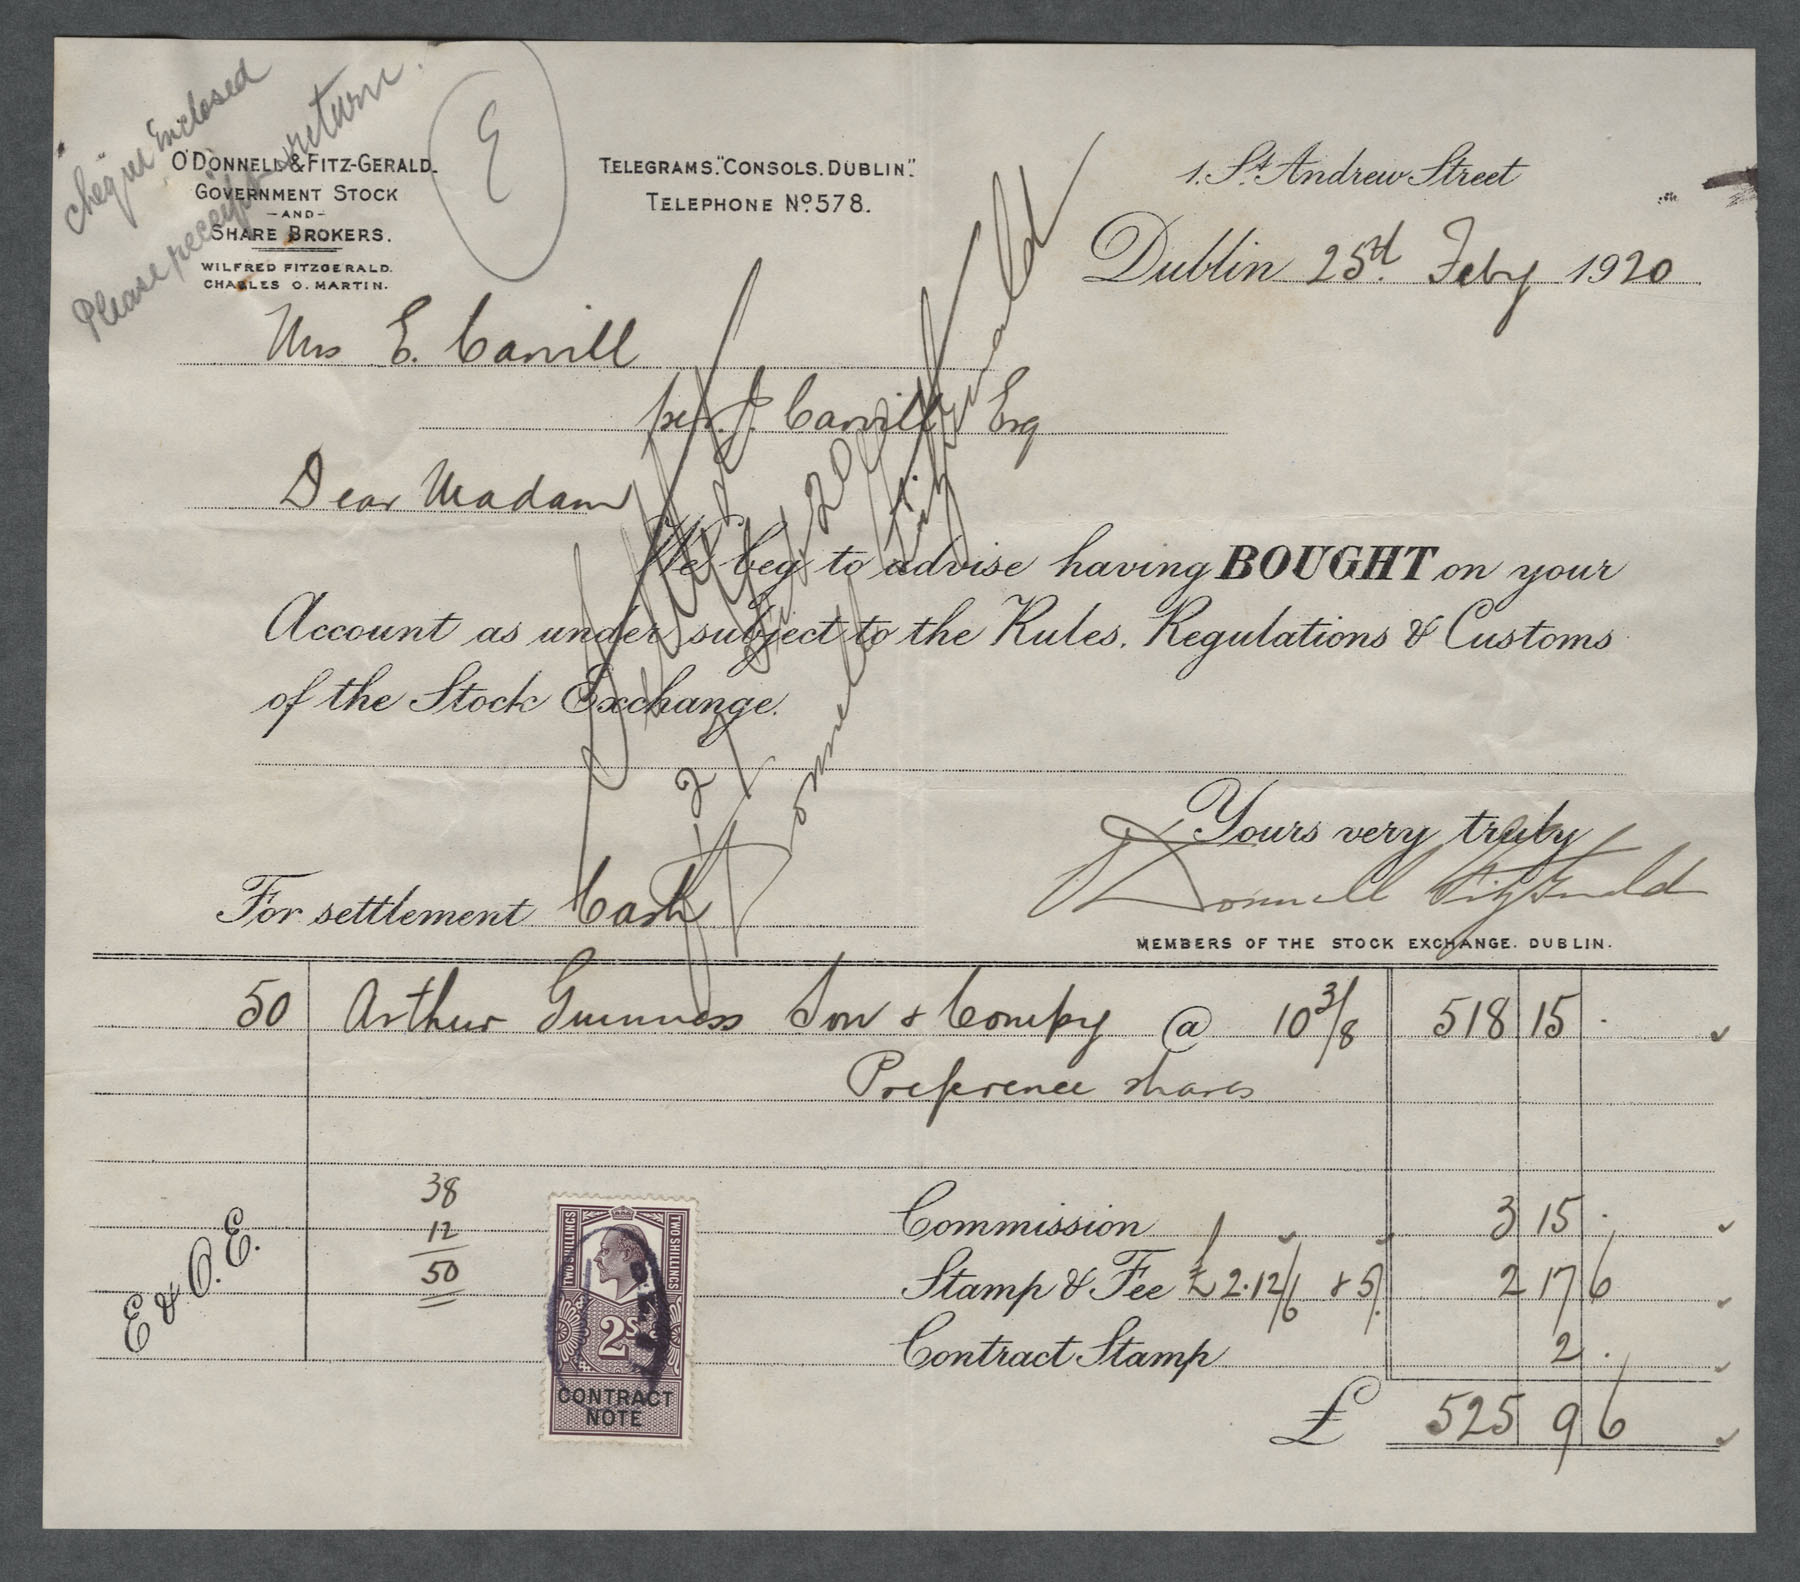 Cheque Enclosed
Please receipt & return.
E
O'DONNELL & FITZ-GERALD.
GOVERNMENT STOCK
-AND-
SHARE BROKERS.
WILFRED FITZGERALD.
CHARLES O. MARTIN.
TELEGRAMS. "CONSOLS. DUBLIN".
TELEPHONE No. 578.
1. St. Andrew Street
Dublin 25th Feby 1920
Mrs E. Carvill
per J. Carvill Esq
Dear Madam
We beg to advise having BOUGHT on your
Account as under subject to the Rules, Regulations & Customs
of the Stock Exchange.
Yours very truly
O'Donnell Fitzgerald
MEMBERS OF THE STOCK EXCHANGE. DUBLIN.
For settlement Cash
50 Arthur Guinness Son & Compy @ 10 3/8 518 15 .
Preference shares
38
12
50
E & O. E.
TWO SHILLINGS TWO SHILLINGS
2s
CONTRACT
NOTE
Commission 3 15 .
Stamp & Fee £2.12/6 & 5/. 2 17 6
Contract Stamp 2 .
£ 525 9 6